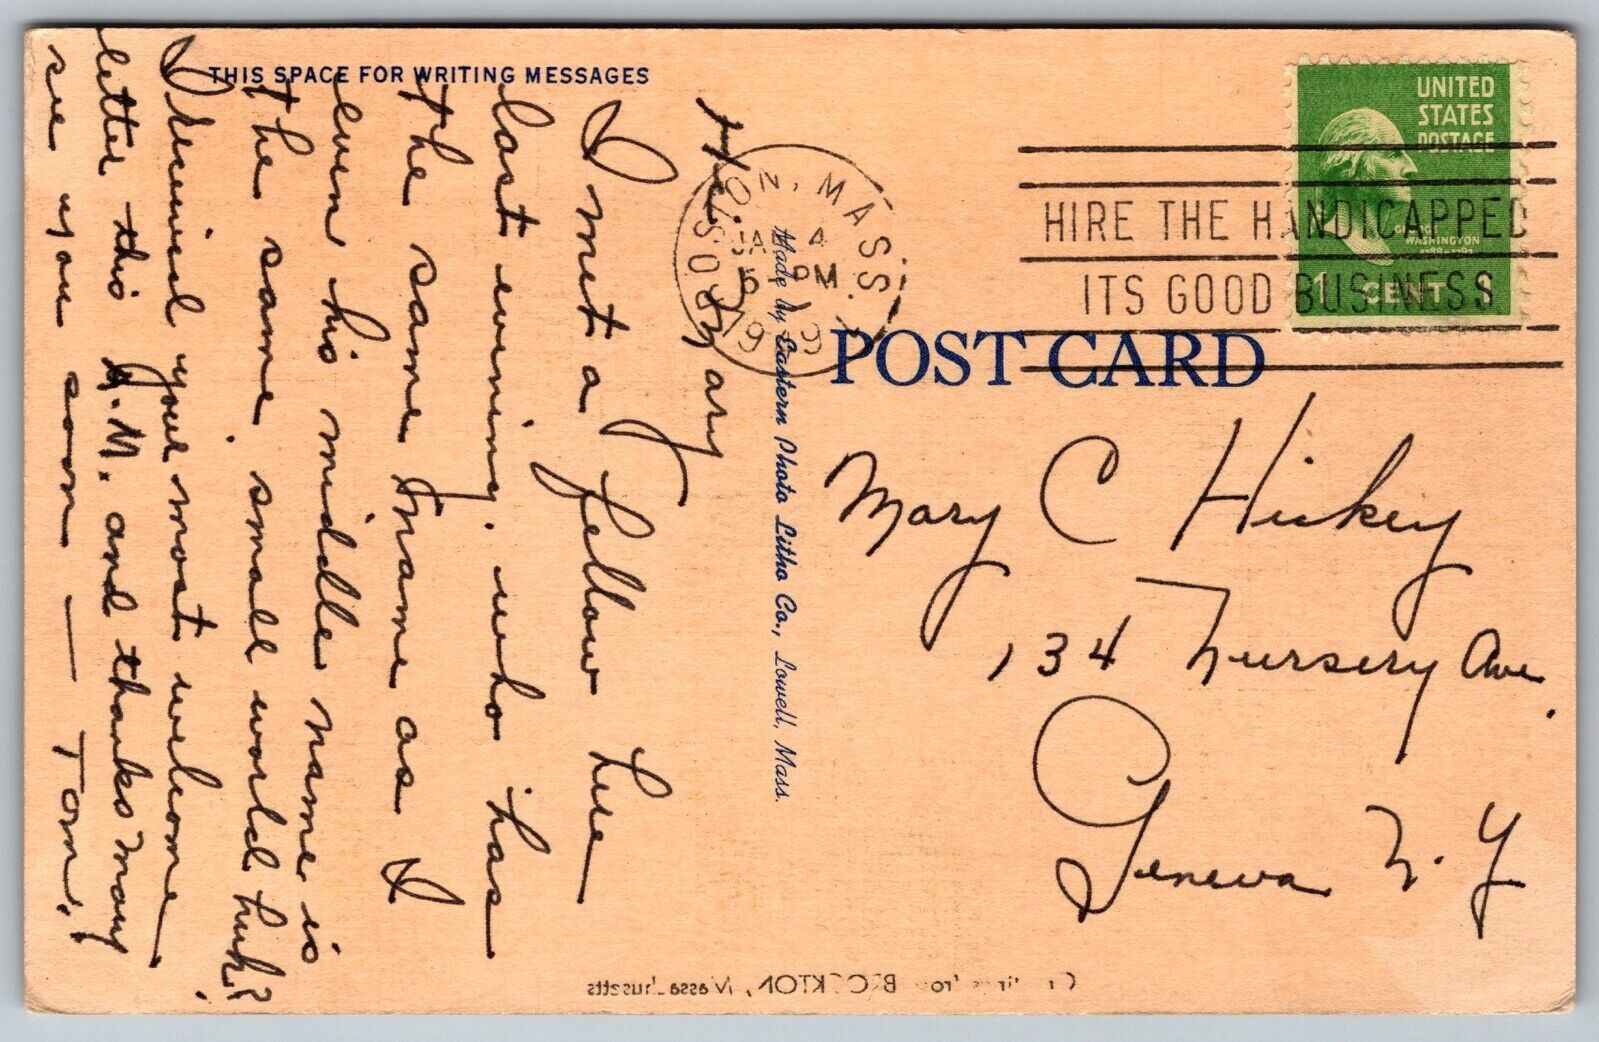 THIS SPACE FOR WRITING MESSAGES
Hi. Mary
I met a fellow here
last evening, who has
the same name as I
even his middle name is
the same, small world huh?
I received your most welcome
letter this A.M. and thanks many
see you soon — Tom.
Made by Eastern Photo Litho Co., Lowell, Mass.
POST CARD
ON, MASS.
4
PM
19
HIRE THE HANDICAPPED
ITS GOOD BUSINESS
UNITED
STATES
POSTAGE
WASHINGTON
1 CENT 1
Mary C Hickey
134 Nursery Ave.
Geneva N.Y
Greetings from BROCKTON, Massachusetts